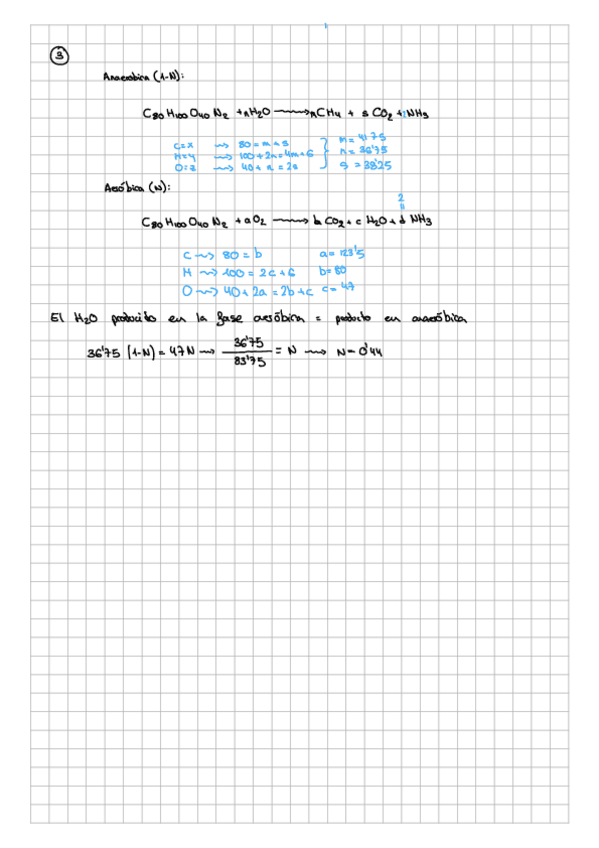 3
Anaerobica (1-N):
C80 H100 O40 N2 + nH2O → nCH4 + s CO2 + 2NH3
C=X → 80 = m + s
H=y → 100 + 2n = 4m + 6
O=z → 40 + n = 2s
m = 41'75
n = 36'75
s = 38'25
Aeróbica (N):
2
C80 H100 O40 N2 + a O2 → b CO2 + c H2O + d NH3
C → 80 = b
H → 100 = 2c + 6
O → 40 + 2a = 2b + c
a = 123'5
b = 80
c = 47
El H2O producido en la fase aeróbica = producto en anaeróbica
36'75 (1-N) = 47N → 36'75 / 83'75 = N → N = 0'44